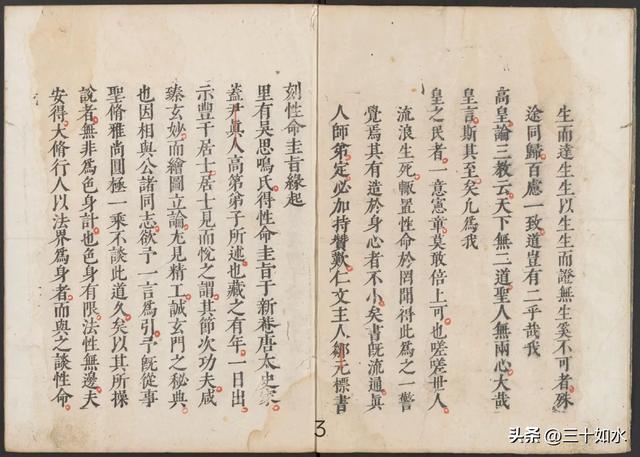 生而達生生以生生而證無生奚不可者殊
途同歸百慮一致道豈有二乎哉我
高皇論三教云天下無二道聖人無兩心大哉
皇言斯其至矣凢為我
皇之民者一意憲章莫敢倍上可也嗟嗟世人
流浪生死輙置性命於罔聞得此為之一警
覺焉其有造於身心者不小矣書既流通眞
人師第定必加持讚歎仁文主人鄒元標書
刻性命圭旨緣起
里有吴思鳴氏得性命圭旨于新菴唐太史家
蓋尹眞人高第弟子所述也藏之有年一日出
示豐干居士居士見而悅之謂其節次功夫咸
臻玄妙而繪圖立論尤見精工誠玄門之秘典
也因相與公諸同志欲予一言為引予既從事
聖脩雅尚圓極一乘不談此道久矣以其所操
說者無非為色身計也色身有限法性無邊夫
安得大脩行人以法界為身者而與之談性命
3
头条 @三十如水